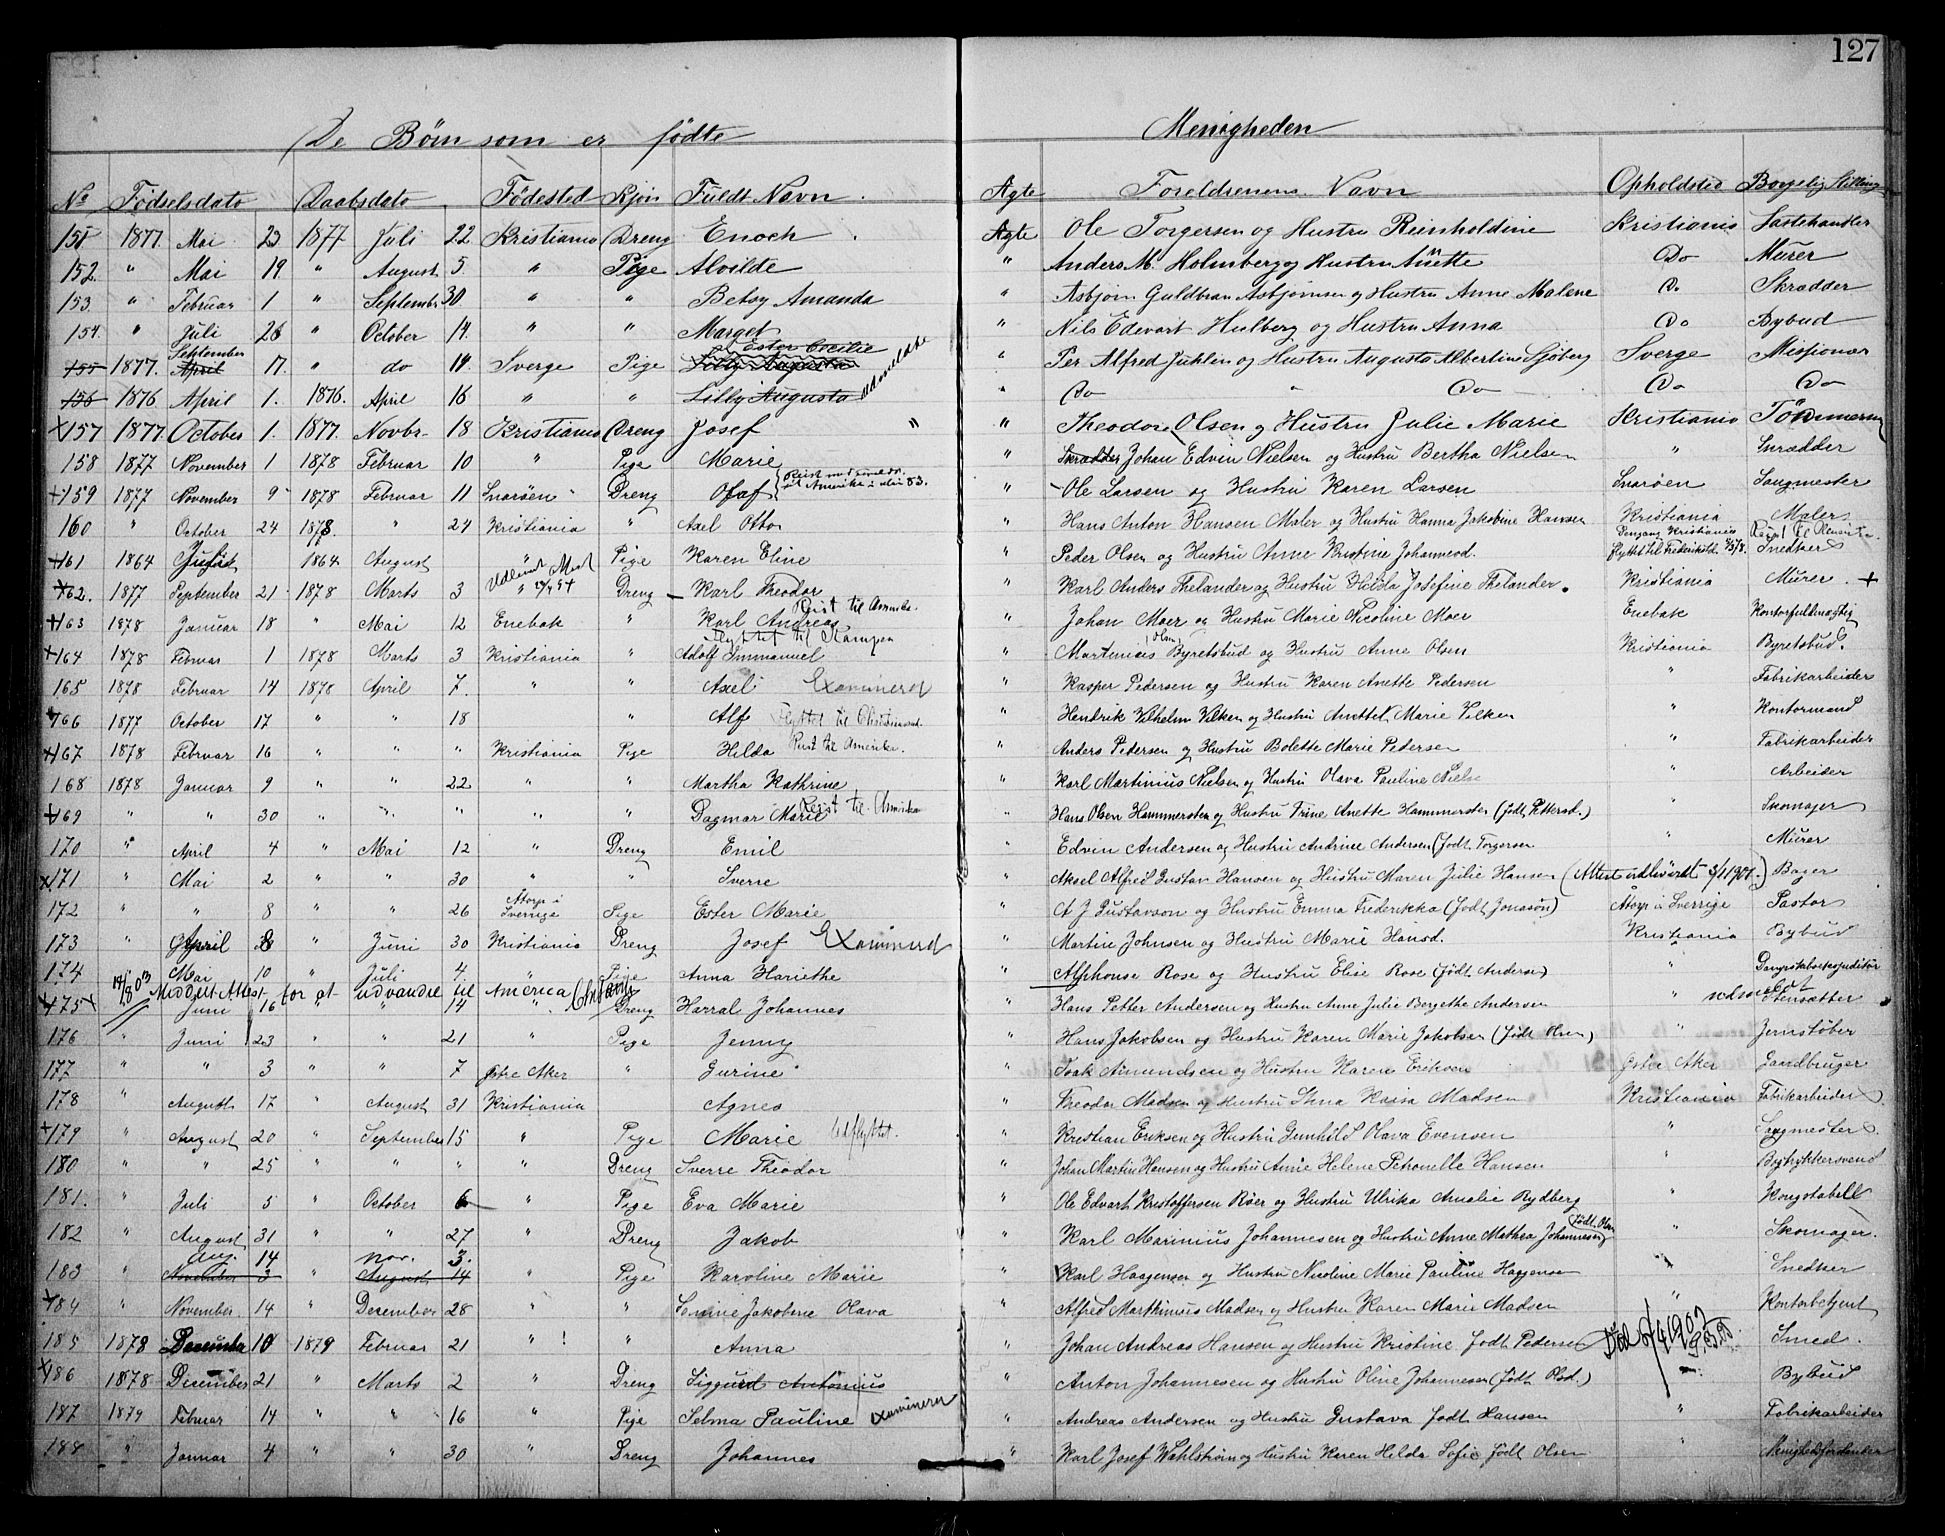 127
De Børn som er fødte Menigheden
No Fødselsdato Daabsdato Fødested Kjøn Fuldt Navn Ægte Foreldrenens Navn Opholdsted Borgelig Stilling
151 1877 Mai 23 1877 Juli 22 Kristiania Dreng Enoch Ægte Ole Torgersen og Hustru Reinholdine Kristiania
152 " Mai 19 " August 5 " Pige Alvilde " Anders M. Holmberg og Hustru Anette Do Murer
153 " Februar 1 " Septembr 30 " " Betsy Amanda " Asbjørn Guldbran Asbjørnsen og Hustru Anne Malene Do Skrædder
154 " Juli 26 " October 14 " " Marget " Nils Edevart Hulberg og Hustru Anna Do Bybud
September Ester Cecilie
155 1877 April 17 " do 14 Sverge Pige Lilly Augusta Udmeldte " Per Alfred Juhlen og Hustru Augusta Albertine Sjöberg Sverge Missionær
156 1876 April 1 1876 April 16 " " Lilly Augusta " Do " Do Do Do
x157 1877 October 1 1877 Novbr 18 Kristiania Dreng Josef " " Theodor Olsen og Hustru Julie Marie Kristiania
158 1877 November 1 1878 Februar 10 " Pige Marie " Skrædder Johan Edvin Nielsen og Hustru Bertha Nielsen " Skrædder
+159 1877 November 9 1878 Februar 11 Snarøen Dreng Olaf " Ole Larsen og Hustru Karen Larsen Snarøen Saugmester
160 " October 24 1878 " 24 Kristiania " Axel Otto " Hans Anton Hansen Maler og Hustru Hanna Jakobine Hansen Kristiania Maler
Dengang Kristiania
+161 1864 1864 August " Pige Karen Eline " Peder Olsen og Hustru Anne Kristine Johannesd. flyttet til Snedker
x162 1877 September 21 1878 Marts 3 Dreng Karl Theodor " Karl Anders Thelander og Hustru Hilda Josefine Thelander Kristiania Murer +
Reist til Amerika
+163 1878 Januar 18 " Mai 12 Enebak " Karl Andreas " Johan Moer og Hustru Marie Nicoline Moer Enebak Kontorfuldmægtig
Flyttet til Kampen (Olsen)
+164 1878 Februar 1 1878 Marts 3 Kristiania " Adolf Immanuel " Martinius Byretsbud og Hustru Anne Olsen Kristiania Byretsbud
165 1878 Februar 14 1878 April 7 " " Axel Examineret " Kasper Pedersen og Hustru Karen Anette Pedersen " Fabrikarbeider
x166 1877 October 17 " " 18 " Alf Flyttet til " Hendrik Vilhelm Vilken og Hustru Anette Marie Vilken " Kontormand
x167 1878 Februar 16 " " " Kristiania Pige Hilda Reist til Amerika " Anders Pedersen og Hustru Bolette Marie Pedersen " Fabrikarbeider
168 1878 Januar 9 " " 22 " " Martha Kathrine " Karl Martinius Nielsen og Hustru Olava Pauline Nielse " Arbeider
x169 " " 30 " " " " " Dagmar Marie Reist til Amerika " Hans Olsen Hammersten og Hustru Trine Anette Hammersten (født Pettersd.) " Skomager
170 " April 4 " Mai 12 " Dreng Emil " Edvin Andersen og Hustru Andrine Andersen (født Torgersen " Murer
x171 " Mai 2 " " 30 " " Sverre " Aksel Alfred Gustav Hansen og Hustru Maren Julie Hansen (Attest udleveret 3/1 1901.) Bager
172 " " 8 " " 26 Åtorp i Sverrige Pige Ester Marie " A J Gustavson og Hustru Emma Frederikka (født Jonason) Åtorp i Sverrige Pastor
173 " April 8 " Juni 30 Kristiania Dreng Josef Examineret " Martin Johnsen og Hustru Marie Hansd. Kristiania Bybud
174 " Mai 10 " Juli 4 " Pige Anna Hariethe " Alphonse Rose og Hustru Elise Rose (født Andersen) "
14/8 03 Meddelt Attest for at udvandre til America
x175x " Juni 16 " " 14 " Dreng Harral Johannes " Hans Petter Andersen og Hustru Anne Julie Bergethe Andersen " udmeldt Stensætter
176 " Juni 23 " " 21 " Pige Jenny " Hans Jakobsen og Hustru Karen Marie Jakobsen (født Olsen) " Jernstøber
177 " " 3 " " 7 Østre Aker " Gurine " Isak Amundsen og Hustru Karen Eriksen Østre Aker Gaardbruger
178 " August 17 " August 31 Kristiania Agnes " Theodor Madsen og Hustru Stina Kaisa Madsen Kristiania Fabrikarbeider
x179 " August 20 " September 15 " Pige Marie Udflyttet. " Kristian Eriksen og Hustru Gunhild Olava Evensen " Sagmester
180 " " 25 " " " " Dreng Sverre Theodor " Johan Martin Hansen og Hustru Anne Helene Petronelle Hansen " Bogtrykkersvend
181 " Juli 5 " October 6 " Pige Eva Marie " Ole Edvart Kristoffersen Röer og Hustru Ulrika Amalie Rydberg " Kongstabell
182 " August 31 " " 27 " Dreng Jakob " Karl Marinius Johannesen og Hustru Anne Mathea Johannesen født Olsen " Skomager
Aug. 14 nov. 3.
183 " November 3 " August 14 " Pige Karoline Marie " Karl Haagensen og Hustru Nicoline Marie Pauline Haagensen " Snedker
x184 " November 14 " Desember 28 " " Jakobine Olava " Alfred Marthinius Madsen og Hustru Karen Marie Madsen " Kontorbetjent
185 1878 December 10 1879 Februar 21 " " Anna " Johan Andreas Hansen og Hustru Kristine født Pedersen Død 5/4 1902 Smed
x186 1878 December 21 " Marts 2 " Dreng Siggurd Antonius " Anton Johannesen og Hustru Oline Johannesen (født Olsd.) " Bybud
187 1879 Februar 14 " " 16 " Pige Selma Pauline Examineret " Andreas Andersen og Hustru Gustava født Hansen " Fabrikarbeider
188 " Januar 4 " " 30 " Dreng Johannes " Karl Josef Wahlstrøm og Hustru Karen Hilda Sofie født Olsen " Menighedsforstander